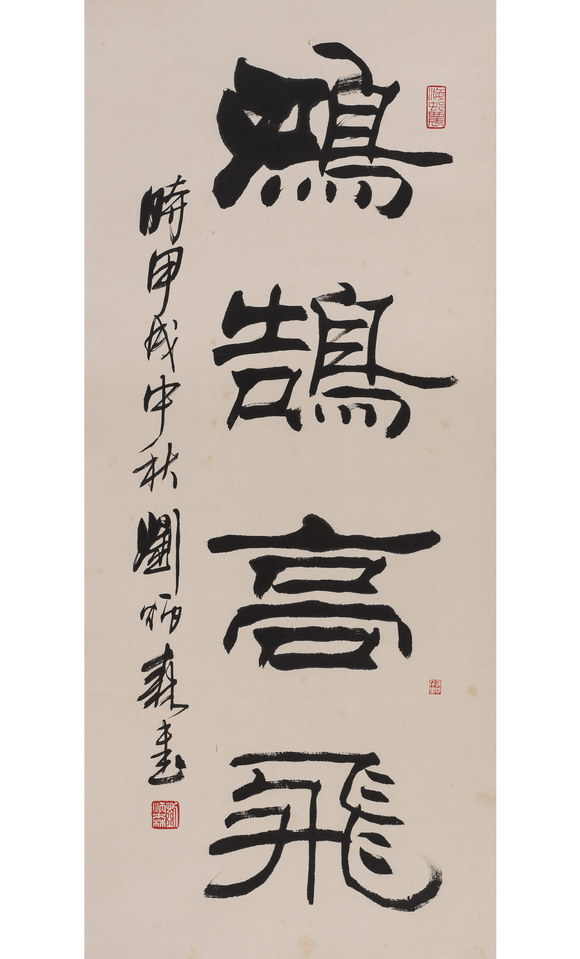 鴻鵠高飛
時甲戌中秋劉炳森書
劉炳森